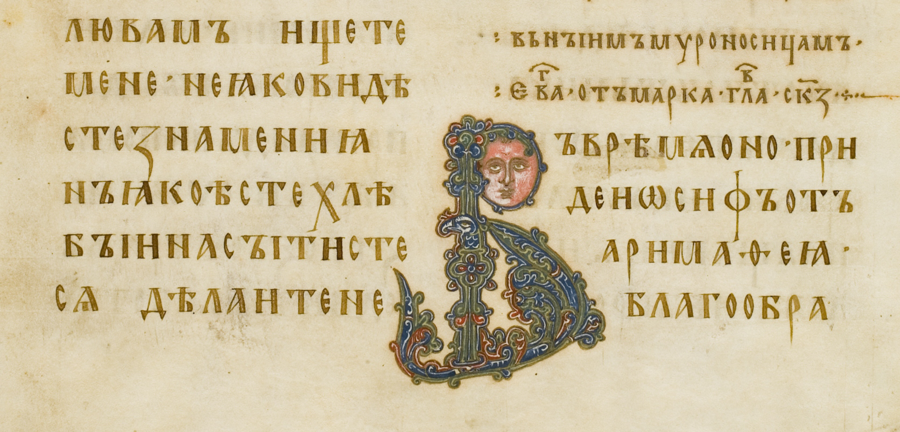 ЛЮВАМЪ ИЩЕТЕ
МЕНЕ · НЕꙖКОВИДѢ
СТЕЗНАМЕНИꙖ
НЪꙖКОѢСТЕХЛѢ
БЪІИНАСЪІТИСТЕ
СѦ ДѢЛАИТЕНЕ
: ВЬНЪІИМЪМУРОНОСИЦАМЪ ·
: Еⷢ҇ВА · ОТЪМАРКА · ГЛⷡ҇А · СКЗ҃ ·
ВЪВРѢМѦОНО · ПРИ
ДЕИѠСИФЪОТЪ
АРИМАѲЕꙖ ·
БЛАГООБРА